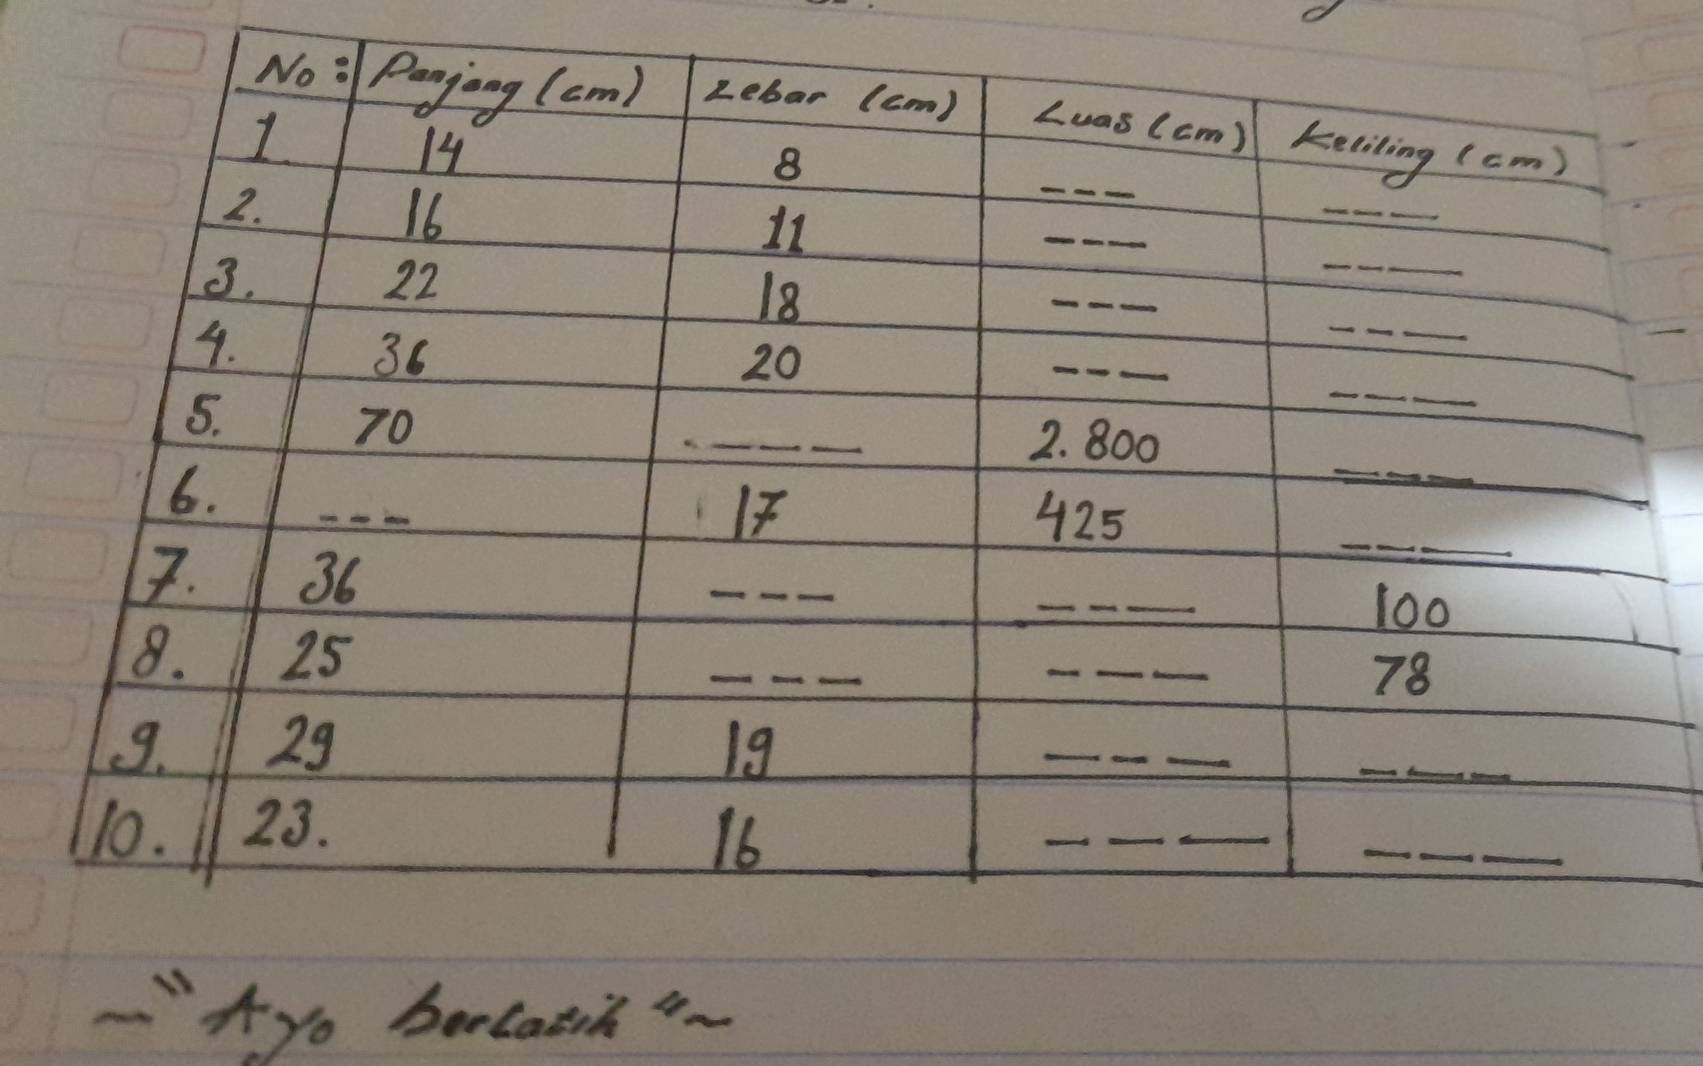 No: Panjang (cm) Lebar (cm) Luas (cm) Keliling (cm)
1. 14 8 --- ---
2. 16 11 --- ---
3. 22 18 --- ---
4. 36 20 --- ---
5. 70 --- 2.800 ---
6. --- 17 425 ---
7. 36 --- --- 100
8. 25 --- --- 78
9. 29 19 --- ---
10. 23. 16 --- ---
~"Ayo berlatih"~